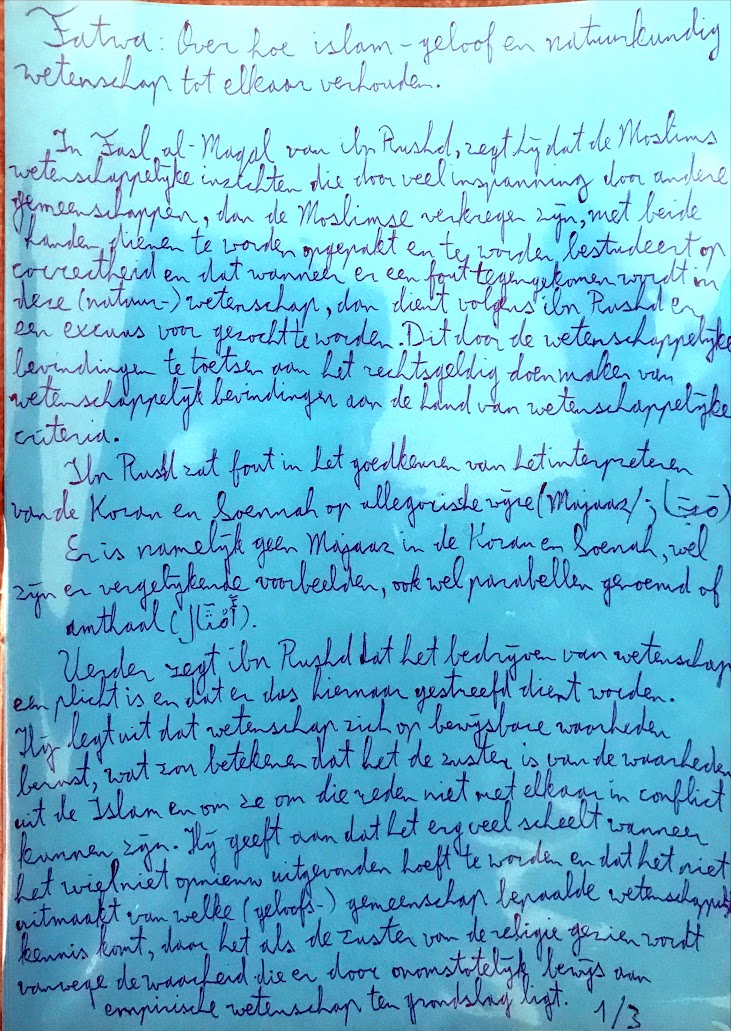 Fatwa: Over hoe islam-geloof en natuurkundig
wetenschap tot elkaar verhouden.
In Fasl al-Maqal van ibn Rushd, zegt hij dat de Moslims
wetenschappelijke inzichten die door veel inspanning door andere
gemeenschappen, dan de Moslimse verkregen zijn, met beide
handen dienen te worden opgepakt en te worden bestudeert op
correctheid en dat wanneer er een fout tegengekomen wordt in
deze (natuur-) wetenschap, dan dient volgens ibn Rushd er
een excuus voor gezocht te worden. Dit door de wetenschappelijke
bevindingen te toetsen aan het rechtsgeldig doen maken van
wetenschappelijk bevindingen aan de hand van wetenschappelijke
criteria.
Ibn Rushd zat fout in het goedkeuren van het interpreteren
van de Koran en Soennah op allegorische wijze (Majaaz/;
Er is namelijk geen Majaaz in de Koran en Soenah, wel
zijn er vergelijkende voorbeelden, ook wel parabellen genoemd of
amthaal (أمثال).
Verder zegt ibn Rushd dat het bedrijven van wetenschap
een plicht is en dat er dus hiernaar gestreefd dient worden.
Hij legt uit dat wetenschap zich op bewijsbare waarheden
berust, wat zou betekenen dat het de zuster is van de waarheden
uit de Islam en om ze om die reden niet met elkaar in conflict
kunnen zijn. Hij geeft aan dat het erg veel scheelt wanneer
het wiel niet opnieuw uitgevonden hoeft te worden en dat het niet
uitmaakt van welke (geloofs-) gemeenschap bepaalde wetenschappelijk
kennis komt, daar het als de zuster van de religie gezien wordt
vanwege de waarheid die er door onomstotelijk bewijs aan
empirische wetenschap ten grondslag ligt. 1/3